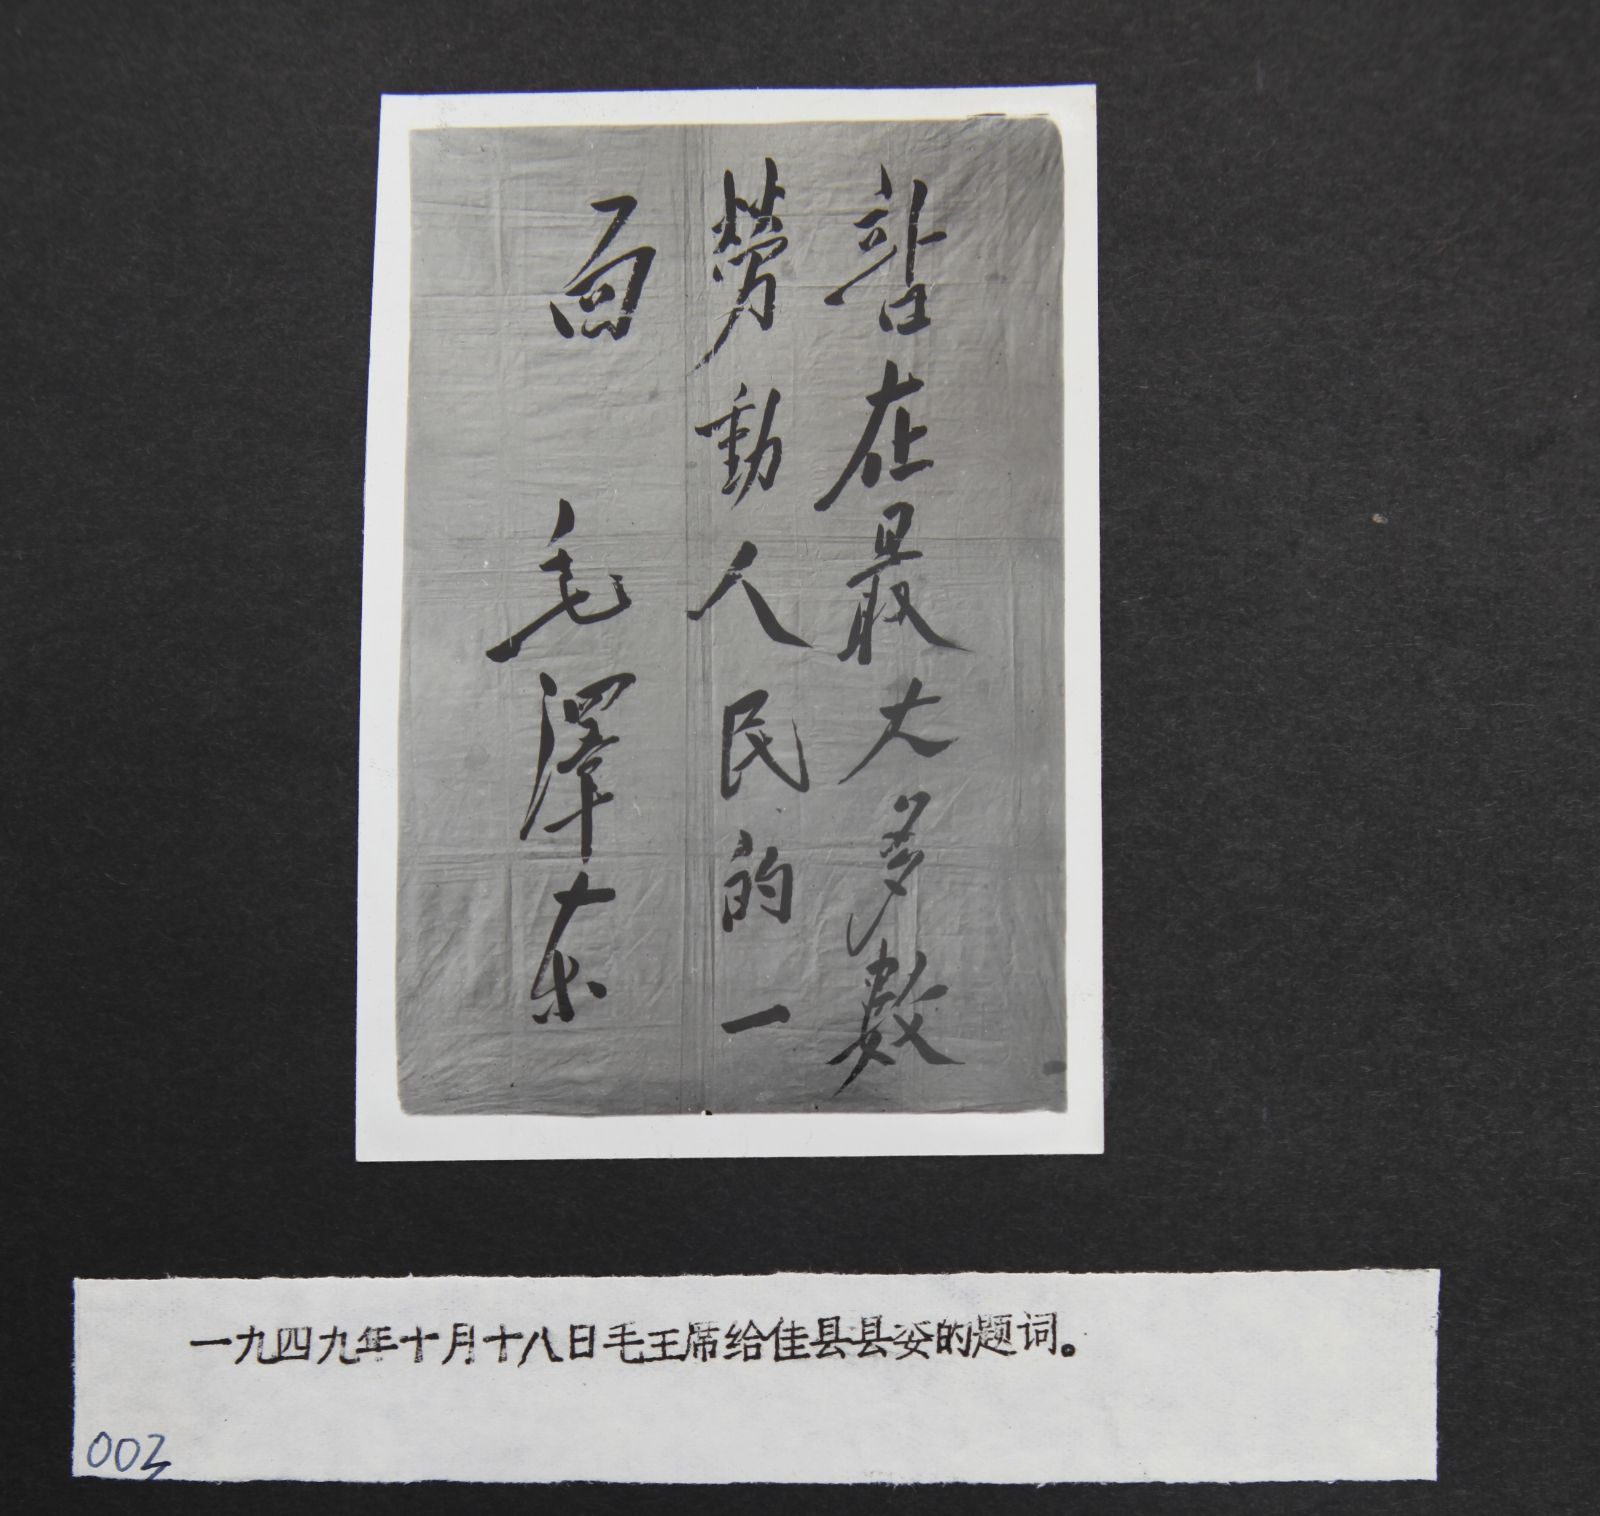 站在最大多數
勞動人民的一
面
毛澤东
一九四九年十月十八日毛主席给佳县县委的题词。
003